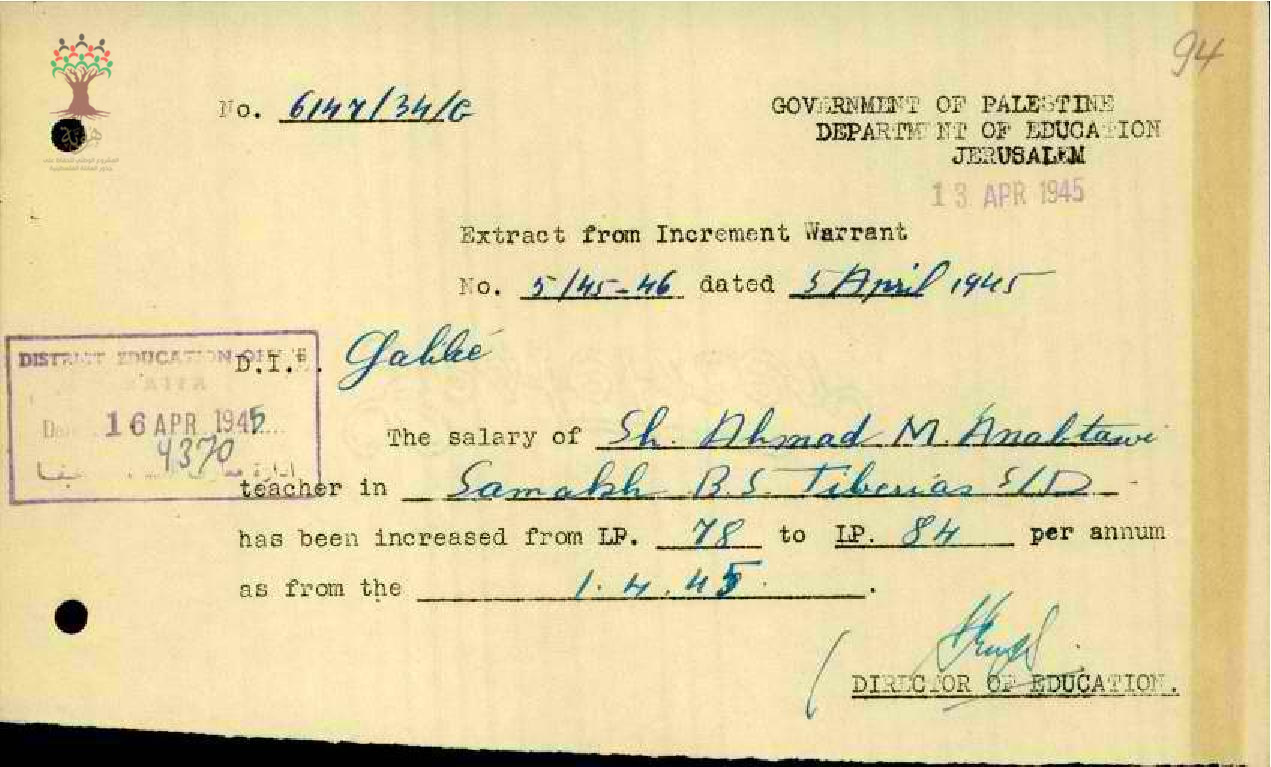 94
No. 6147/34/G
GOVERNMENT OF PALESTINE
DEPARTMENT OF EDUCATION
JERUSALEM
13 APR 1945
Extract from Increment Warrant
No. 5/45-46 dated 5 April 1945
DISTRICT EDUCATION OFFICE
16 APR 1945
4370
D.I.E. Galilee
The salary of Sh. Ahmad M. Anabtawi
teacher in Samakh B.S. Tiberias S/D
has been increased from LP. 78 to LP. 84 per annum
as from the 1.4.45.
DIRECTOR OF EDUCATION.
هوية